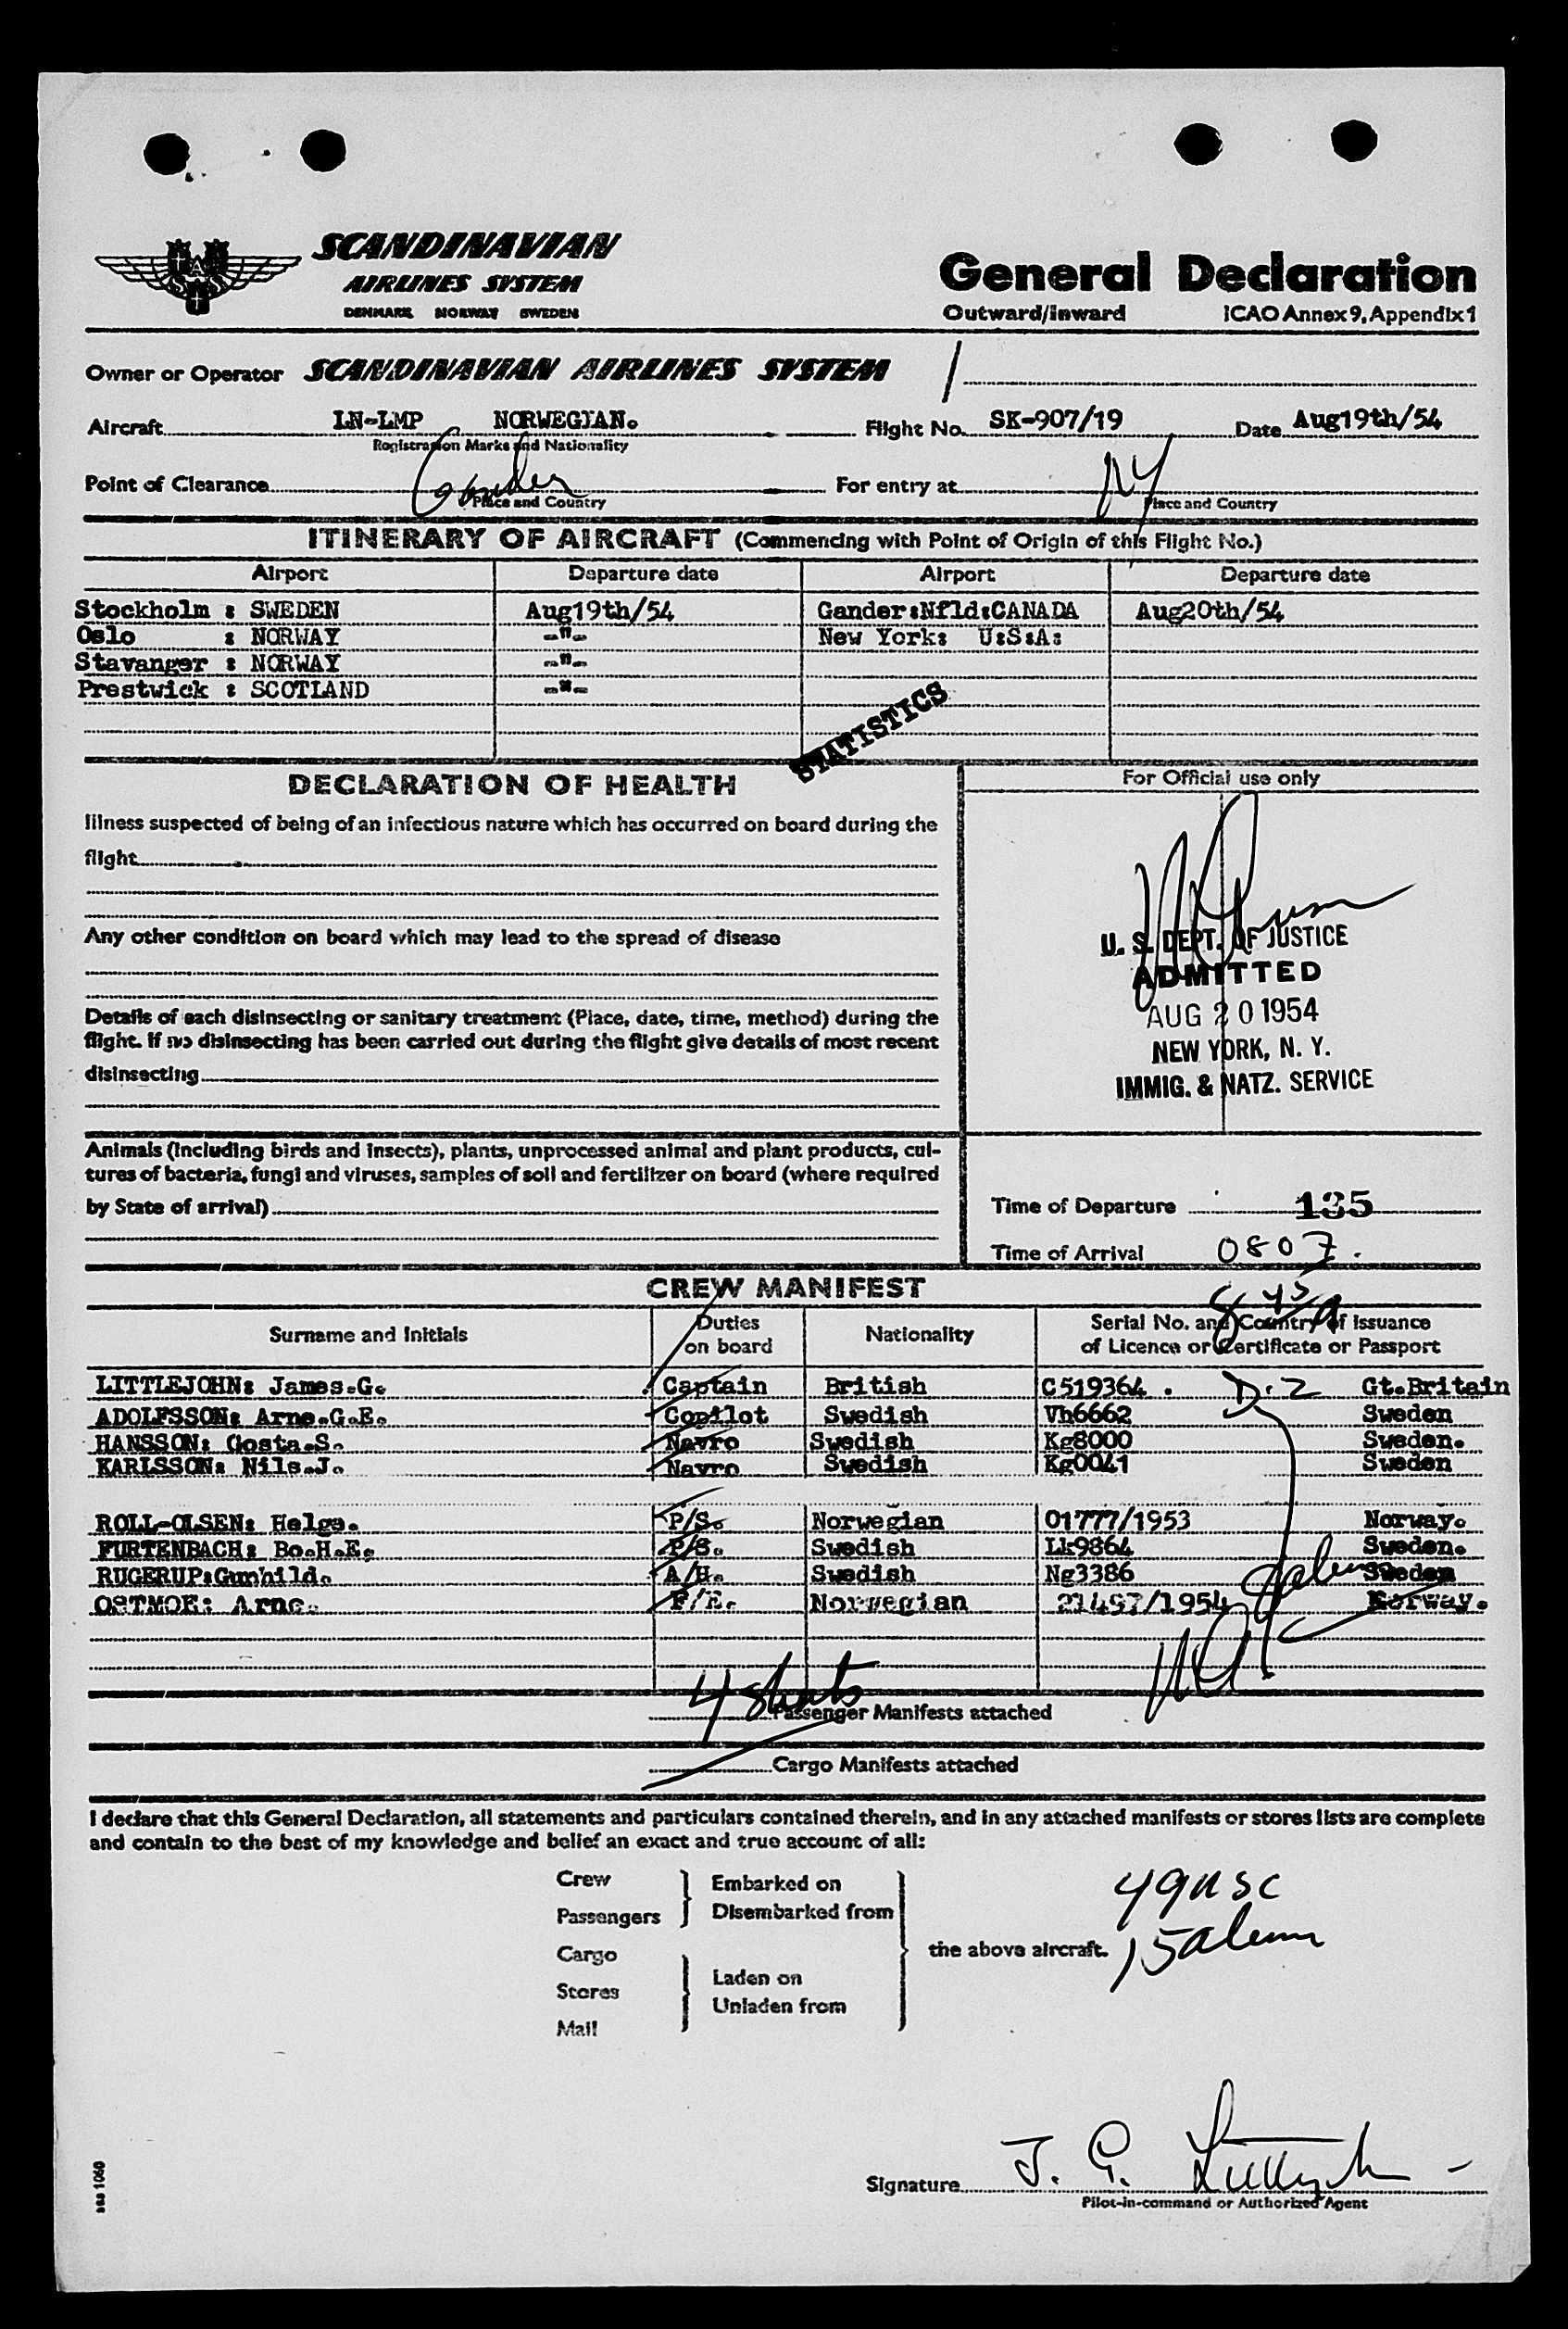 SCANDINAVIAN
AIRLINES SYSTEM
DENMARK NORWAY SWEDEN
General Declaration
Outward/Inward ICAO Annex 9, Appendix 1
Owner or Operator SCANDINAVIAN AIRLINES SYSTEM /
Aircraft LN-LMP NORWEGIAN. Flight No. SK-907/19 Date Aug19th/54
Registration Marks and Nationality
Point of Clearance Gander For entry at NY
Place and Country Place and Country
ITINERARY OF AIRCRAFT (Commencing with Point of Origin of this Flight No.)
Airport Departure date Airport Departure date
Stockholm : SWEDEN Aug19th/54 Gander:Nfld:CANADA Aug20th/54
Oslo : NORWAY -"- New York: U:S:A:
Stavanger : NORWAY -"-
Prestwick : SCOTLAND -"-
STATISTICS
DECLARATION OF HEALTH
For Official use only
Illness suspected of being of an infectious nature which has occurred on board during the
flight
Any other condition on board which may lead to the spread of disease
U. S. DEPT. OF JUSTICE
ADMITTED
AUG 20 1954
NEW YORK, N. Y.
IMMIG. & NATZ. SERVICE
Details of each disinsecting or sanitary treatment (Place, date, time, method) during the
flight. If no disinsecting has been carried out during the flight give details of most recent
disinsecting
Animals (including birds and insects), plants, unprocessed animal and plant products, cul-
tures of bacteria, fungi and viruses, samples of soil and fertilizer on board (where required
by State of arrival)
Time of Departure 135
Time of Arrival 0807.
CREW MANIFEST
Surname and Initials Duties on board Nationality Serial No. and Country of Issuance of Licence or Certificate or Passport
LITTLEJOHN: James.G. Captain British C519364 . D.2 Gt.Britain
ADOLFSSON: Arne.G.E. Copilot Swedish Vh6662 Sweden
HANSSON: Gosta.S. Navro Swedish Kg8000 Sweden.
KARLSSON: Nils.J. Navro Swedish Kg0041 Sweden
ROLL-OLSEN: Helge. P/S. Norwegian 01777/1953 Norway.
FURTENBACH: Bo.H.E. P/S. Swedish Lk9864 Sweden.
RUGERUP:Gunhild. A/H. Swedish Ng3386 Sweden
OSTMOE: Arne. F/E. Norwegian 21497/1954 Norway.
4 sheets Passenger Manifests attached
Cargo Manifests attached
I declare that this General Declaration, all statements and particulars contained therein, and in any attached manifests or stores lists are complete
and contain to the best of my knowledge and belief an exact and true account of all:
Crew
Passengers
Embarked on
Disembarked from
Cargo
Stores
Mail
Laden on
Unladen from
the above aircraft.
49 USC
15 alien
Signature J. G. Littlejohn
Pilot-in-command or Authorized Agent
sas 1060